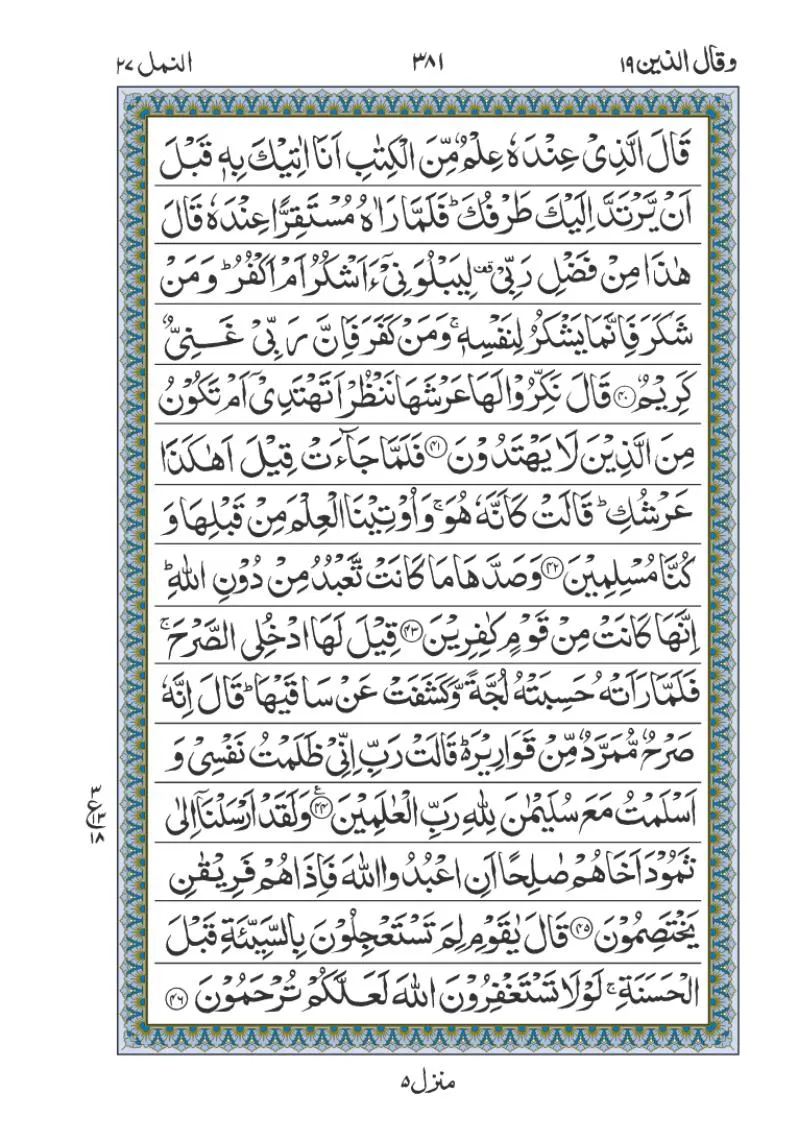 وقال الذین ۱۹
۳۸۱
النمل ۲۷
قَالَ الَّذِیْ عِنْدَهٗ عِلْمٌ مِّنَ الْكِتٰبِ اَنَا اٰتِیْكَ بِهٖ قَبْلَ
اَنْ یَّرْتَدَّ اِلَیْكَ طَرْفُكَ ؕ فَلَمَّا رَاٰهُ مُسْتَقِرًّا عِنْدَهٗ قَالَ
هٰذَا مِنْ فَضْلِ رَبِّیْ ۫ۖ لِیَبْلُوَنِیْۤ ءَاَشْكُرُ اَمْ اَكْفُرُ ؕ وَ مَنْ
شَكَرَ فَاِنَّمَا یَشْكُرُ لِنَفْسِهٖ ۚ وَ مَنْ كَفَرَ فَاِنَّ رَبِّیْ غَنِیٌّ
كَرِیْمٌ ﴿۴۰﴾ قَالَ نَكِّرُوْا لَهَا عَرْشَهَا نَنْظُرْ اَتَهْتَدِیْۤ اَمْ تَكُوْنُ
مِنَ الَّذِیْنَ لَا یَهْتَدُوْنَ ﴿۴۱﴾ فَلَمَّا جَآءَتْ قِیْلَ اَهٰكَذَا
عَرْشُكِ ؕ قَالَتْ كَاَنَّهٗ هُوَ ۚ وَ اُوْتِیْنَا الْعِلْمَ مِنْ قَبْلِهَا وَ
كُنَّا مُسْلِمِیْنَ ﴿۴۲﴾ وَ صَدَّهَا مَا كَانَتْ تَّعْبُدُ مِنْ دُوْنِ اللّٰهِ ؕ
اِنَّهَا كَانَتْ مِنْ قَوْمٍ كٰفِرِیْنَ ﴿۴۳﴾ قِیْلَ لَهَا ادْخُلِی الصَّرْحَ ۚ
فَلَمَّا رَاَتْهُ حَسِبَتْهُ لُجَّةً وَّ كَشَفَتْ عَنْ سَاقَیْهَا ؕ قَالَ اِنَّهٗ
صَرْحٌ مُّمَرَّدٌ مِّنْ قَوَارِیْرَ ؕ۬ قَالَتْ رَبِّ اِنِّیْ ظَلَمْتُ نَفْسِیْ وَ
اَسْلَمْتُ مَعَ سُلَیْمٰنَ لِلّٰهِ رَبِّ الْعٰلَمِیْنَ ﴿۴۴﴾ؑ وَ لَقَدْ اَرْسَلْنَاۤ اِلٰی
۳
ع ۱۳
۱۸
ثَمُوْدَ اَخَاهُمْ صٰلِحًا اَنِ اعْبُدُوا اللّٰهَ فَاِذَا هُمْ فَرِیْقٰنِ
یَخْتَصِمُوْنَ ﴿۴۵﴾ قَالَ یٰقَوْمِ لِمَ تَسْتَعْجِلُوْنَ بِالسَّیِّئَةِ قَبْلَ
الْحَسَنَةِ ۚ لَوْلَا تَسْتَغْفِرُوْنَ اللّٰهَ لَعَلَّكُمْ تُرْحَمُوْنَ ﴿۴۶﴾
منزل ۵